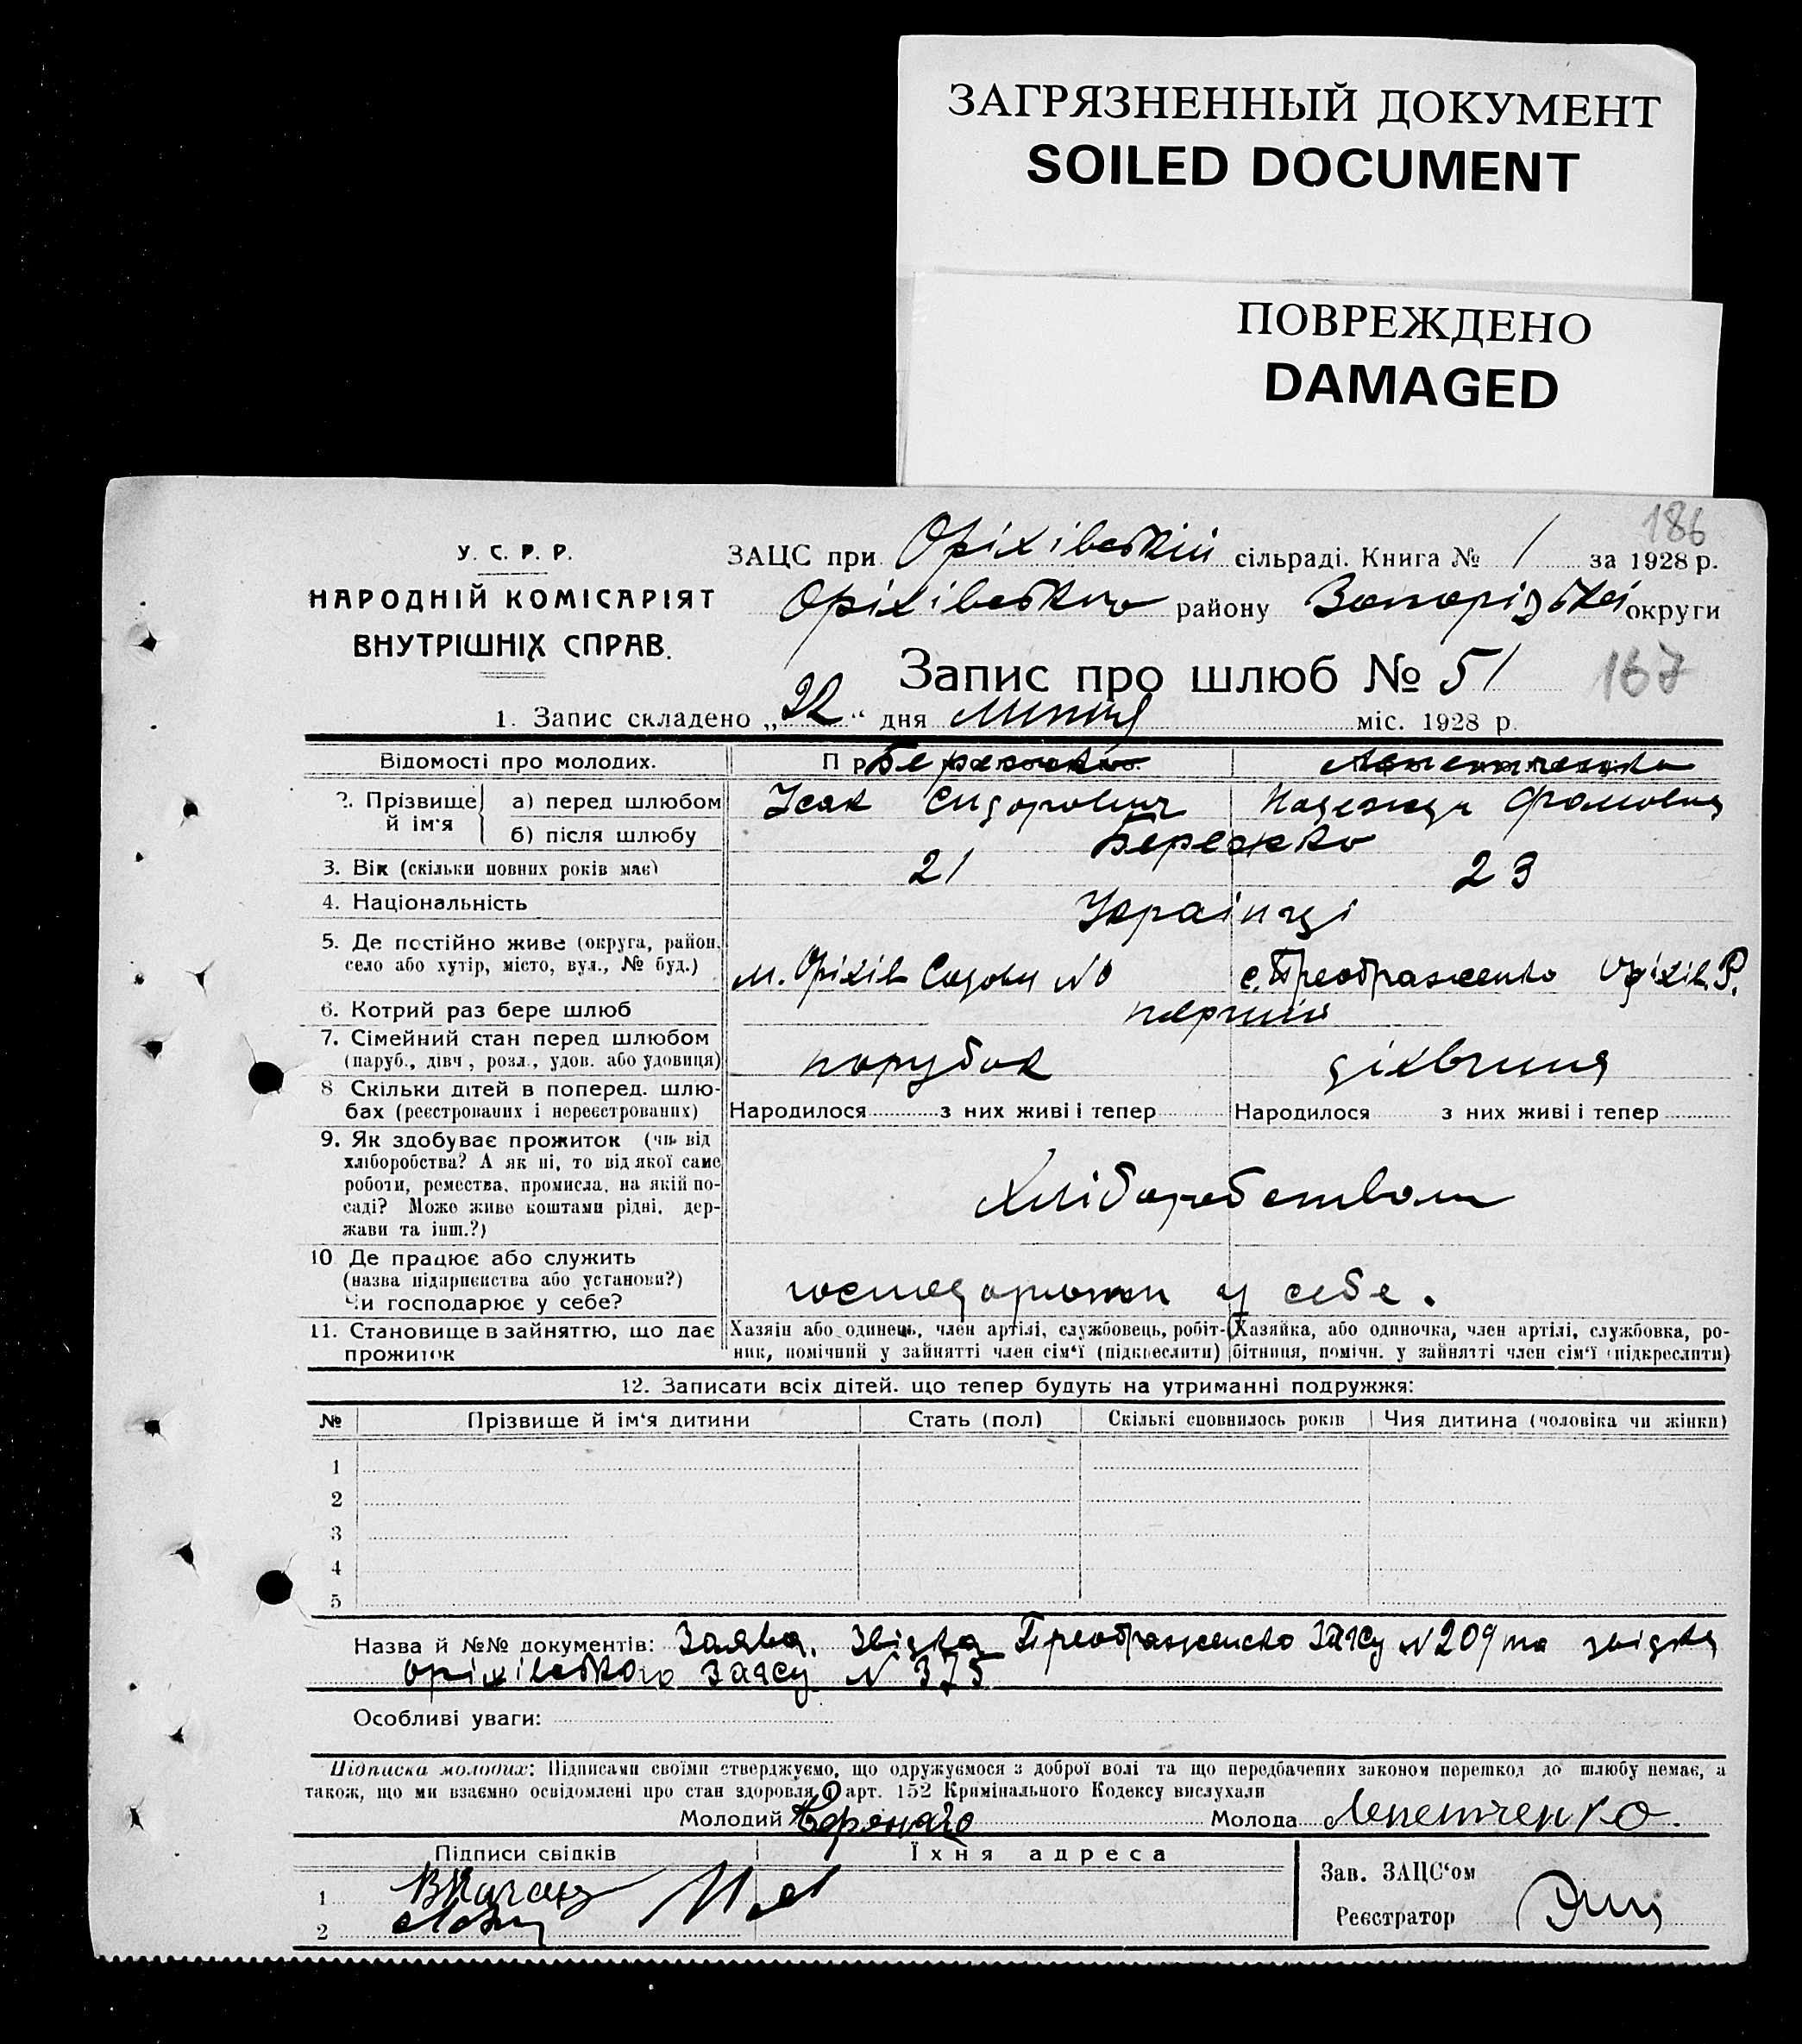 ЗАГРЯЗНЕННЫЙ ДОКУМЕНТ
SOILED DOCUMENT
ПОВРЕЖДЕНО
DAMAGED
186
У. С. Р. Р.
НАРОДНІЙ КОМІСАРІЯТ
ВНУТРІШНІХ СПРАВ.
ЗАЦС при Оріхівській сільраді. Книга № 1 за 1928 р.
Оріхівського району Запорізької округи
Запис про шлюб № 51
167
1. Запис складено „22“ дня липня міс. 1928 р.
Відомості про молодих.
2. Прізвище й ім'я
а) перед шлюбом
Ісак Сидорович
Надежда Фомовна
б) після шлюбу
Бережко
3. Вік (скільки повних років має)
21
23
4. Національність
Українці
5. Де постійно живе (округа, район, село або хутір, місто, вул., № буд.)
м. Оріхів Садова №
с. Преображенко Оріхів. Р.
6. Котрий раз бере шлюб
перший
7. Сімейний стан перед шлюбом
(паруб., дівч, розл., удов. або удовиця)
парубок
дівчина
8 Скільки дітей в поперед. шлюбах (реєстрованих і нереєстрованих)
Народилося з них живі і тепер
Народилося з них живі і тепер
9. Як здобуває прожиток (чи від
хліборобства? А як ні, то від якої саме
роботи, ремества, промисла, на якій по-
саді? Може живе коштами рідні, дер-
жави та інш.?)
Хліборобством
10 Де працює або служить
(назва підприємства або установи?)
Чи господарює у себе?
господарюють у себе.
11. Становище в зайняттю, що дає
прожиток
Хазяїн або одинець, член артілі, службовець, робіт-
ник, помічний у зайнятті член сім'ї (підкреслити)
Хазяйка, або одиночка, член артілі, службовка, ро-
бітниця, помічн. у зайнятті член сім'ї (підкреслити)
12. Записати всіх дітей, що тепер будуть на утриманні подружжя:
№ Прізвище й ім'я дитини Стать (пол) Скількі сповнилось років Чия дитина (чоловіка чи жінки)
1
2
3
4
5
Назва й №№ документів: Заява. Звідка Преображенсько Загсу № 209 та звідка
Оріхівського Загсу № 375
Особливі уваги:
Підписка молодих: Підписами своїми стверджуємо, що одружуємося з доброї волі та що передбачених законом перешкод до шлюбу немає, а
також, що ми взаємно освідомлені про стан здоровля, арт. 152 Кримінального Кодексу вислухали
Молодий
Молода Лепетченко
Підписи свідків
Їхня адреса
1
2
Зав. ЗАЦС'ом
Реєстратор